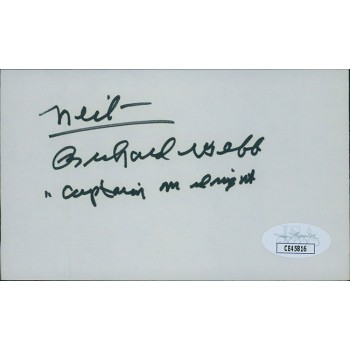 Neil —
Richard Webb
" Captain Midnight
JSA
CE45816